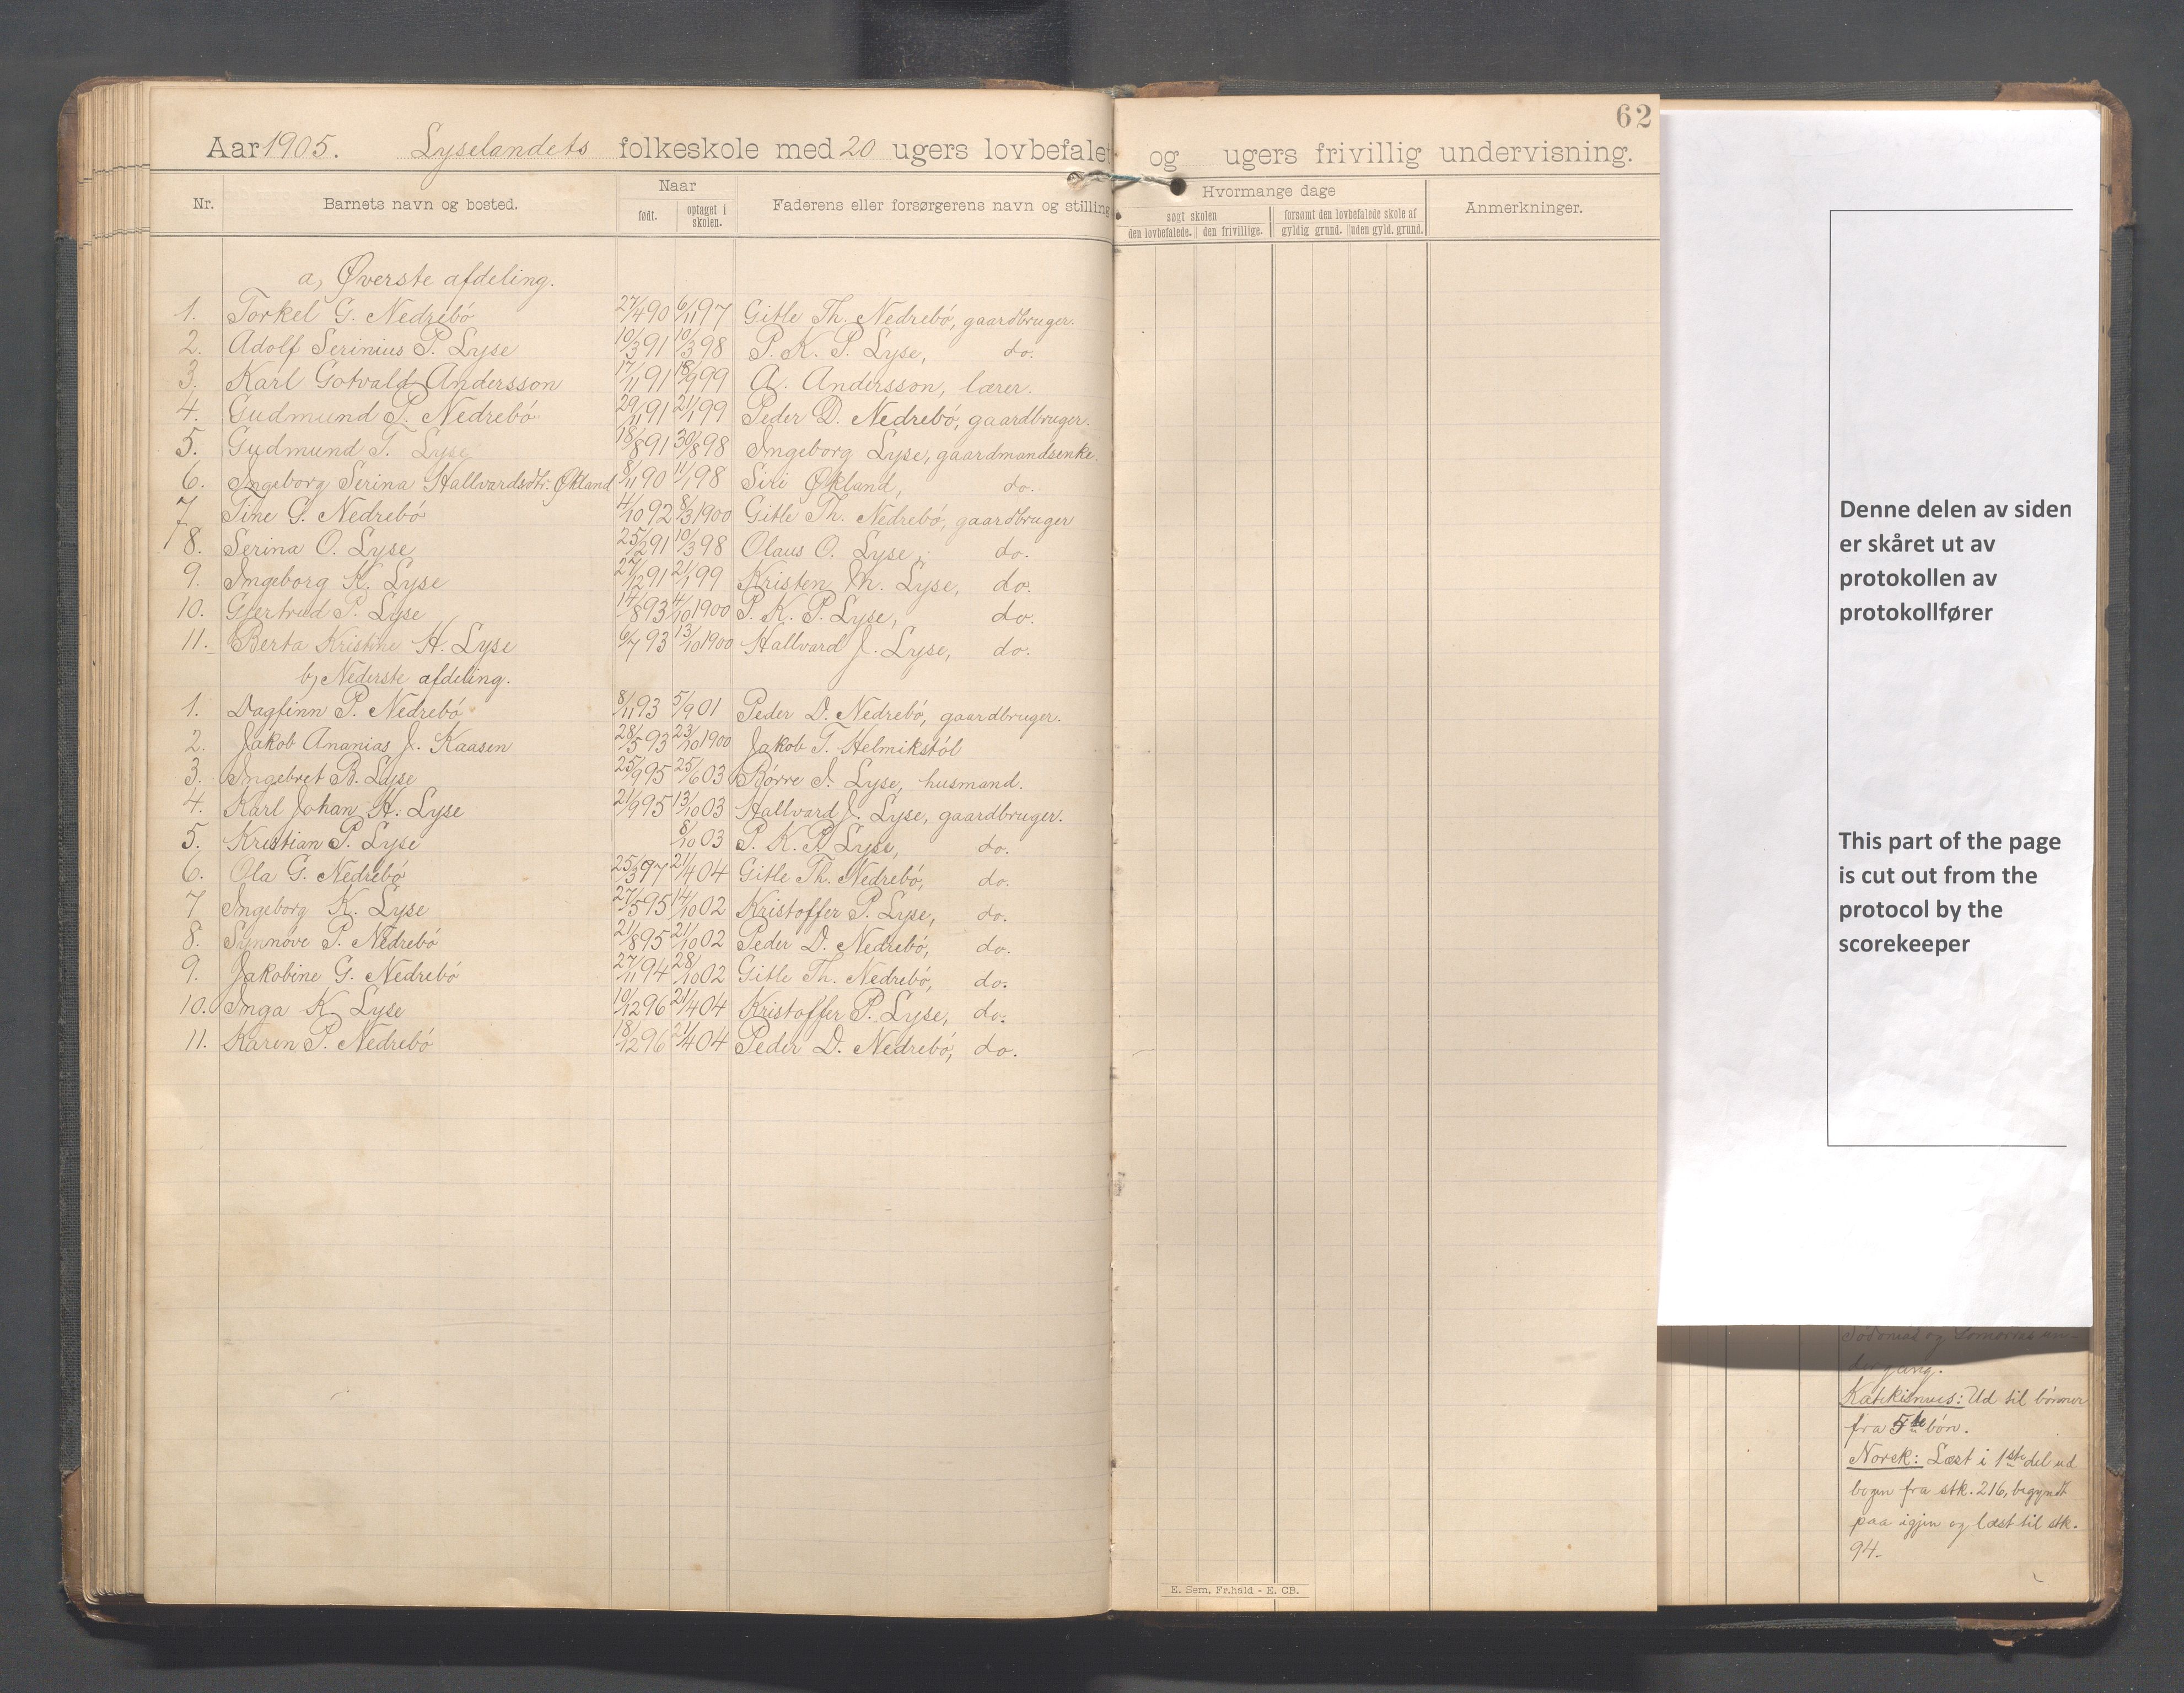 62
Aar 1905. Lyselandets folkeskole med 20 ugers lovbefalet og ugers frivillig undervisning.
Nr. Barnets navn og bosted. Naar født. optaget i skolen. Faderens eller forsørgerens navn og stilling
Hvormange dage søgt skolen den lovbefalede. den frivillige. forsømt den lovbefalede skole af gyldig grund. uden gyld. grund. Anmerkninger.
a, Øverste afdeling.
1. Torkel G. Nedrebó 27/4 90 6/11 97 Gitle Th. Nedrebó, gaardbruger.
2. Adolf Serinius P. Lyse 10/3 91 10/3 98 P. K. P. Lyse, do.
3. Karl Gotvald Andersson 17/11 91 18/9 99 A. Andersson, lærer.
4. Gudmund P. Nedrebó 29/11 91 21/1 99 Peder D. Nedrebó, gaardbruger.
5. Gudmund T. Lyse 18/8 91 30/8 98 Ingeborg Lyse, gaardmandsenke.
6. Ingeborg Serina Hallvardsdtr. Økland 8/11 90 11/1 98 Siri Økland, do.
7 Tine G. Nedrebó 4/10 92 8/3 1900 Gitle Th. Nedrebó, gaardbruger
8. Serina O. Lyse 25/2 91 10/3 98 Olaus O. Lyse, do.
9. Ingeborg K. Lyse 27/12 91 21/1 99 Kristen M. Lyse, do.
10. Gjertrud P. Lyse 17/8 93 4/10 1900 P. K. P. Lyse, do.
11. Berta Kristine H. Lyse 6/7 93 13/10 1900 Hallvard J. Lyse, do.
b, Nederste afdeling.
1. Dagfinn P. Nedrebó 8/11 93 5/9 01 Peder D. Nedrebó, gaardbruger.
2. Jakob Ananias J. Kaasen 28/5 93 23/10 1900 Jakob T. Helmikstól
3. Ingebret B. Lyse 25/9 95 25/6 03 Børre I. Lyse, husmand.
4. Karl Johan H. Lyse 21/9 95 13/10 03 Hallvard J. Lyse, gaardbruger.
5. Kristian P. Lyse 8/10 03 P. K. P. Lyse, do.
6. Ola G. Nedrebó 25/3 97 21/4 04 Gitle Th. Nedrebó, do.
7 Ingeborg K. Lyse 27/5 95 14/10 02 Kristoffer P. Lyse, do.
8. Synnöve P. Nedrebó 21/8 95 21/10 02 Peder D. Nedrebó, do.
9. Jakobine G. Nedrebó 27/11 94 28/10 02 Gitle Th. Nedrebó, do.
10. Inga K. Lyse 10/12 96 21/4 04 Kristoffer P. Lyse, do.
11. Karen P. Nedrebó 18/12 96 21/4 04 Peder D. Nedrebó, do.
E. Sem, Fr.hald - E. CB.
Denne delen av siden
er skåret ut av
protokollen av
protokollfører
This part of the page
is cut out from the
protocol by the
scorekeeper
Katekismus: Ud til bónner
fra 5te bón.
Norsk: Læst i 1ste del ud
bogen fra stk. 216, begyndt
paa igjen og læst til stk.
94.